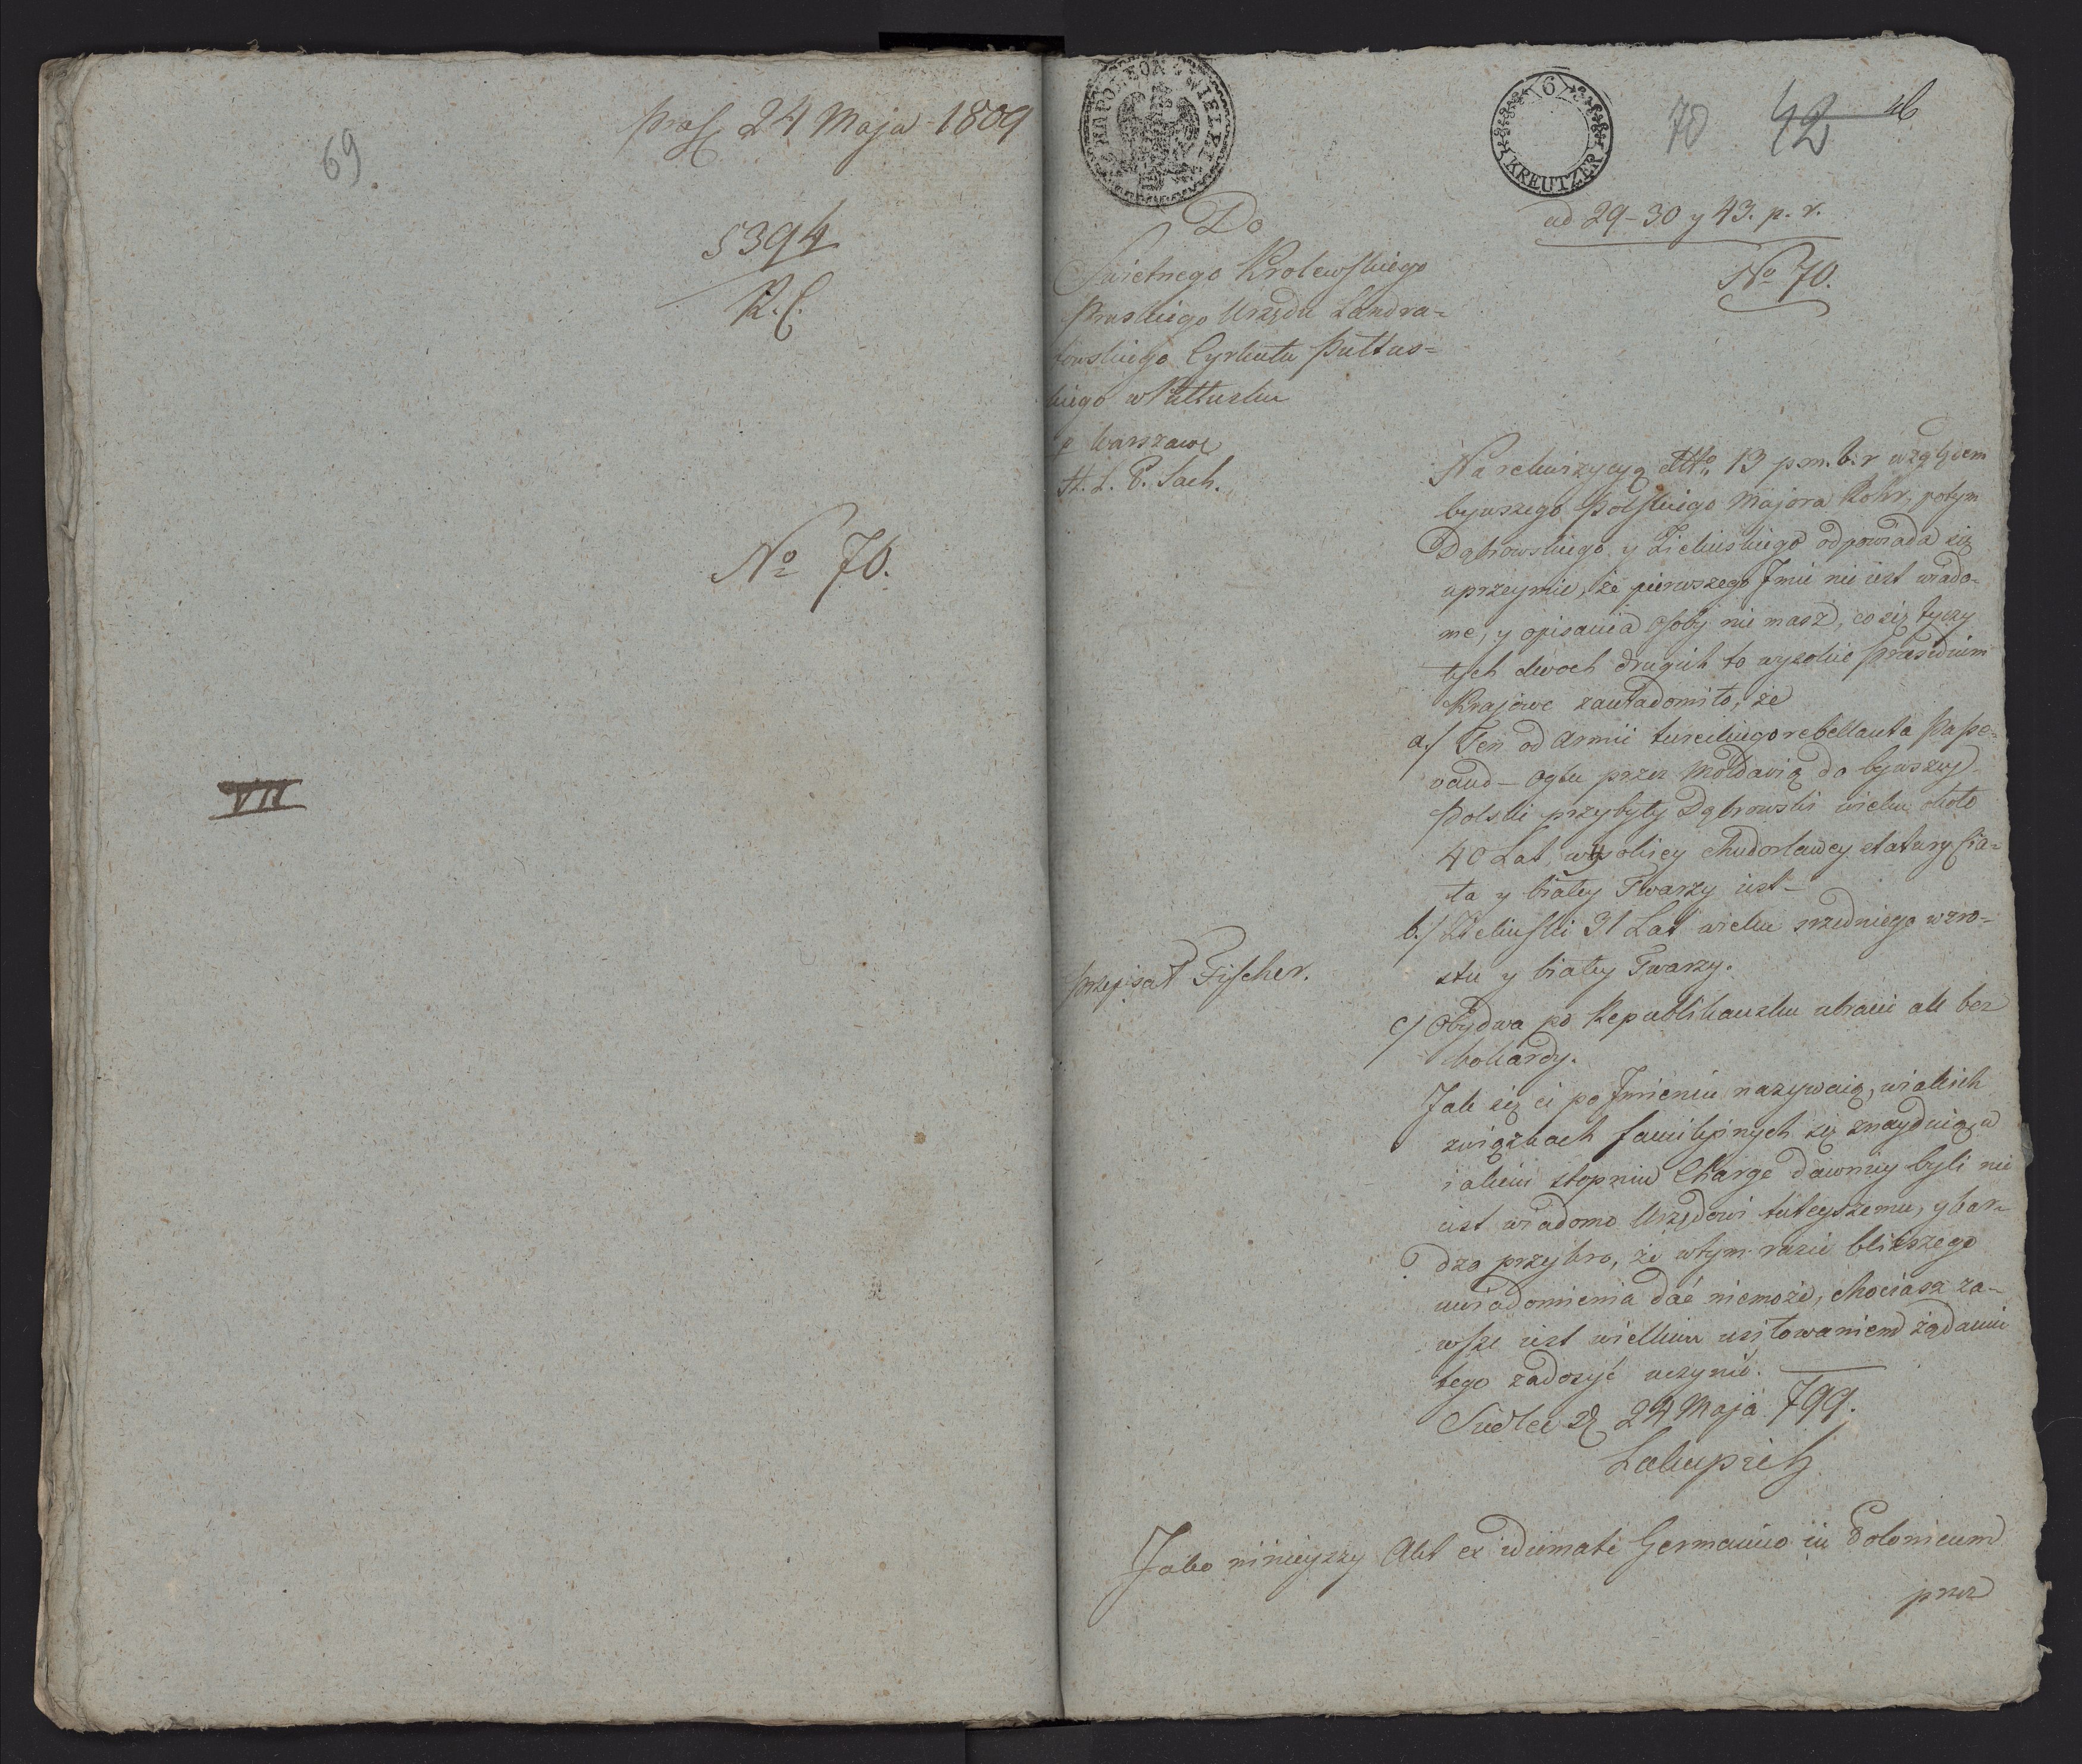 69
24 Maja 1809
5394
R. C.
No 70.
VII
NAPOLEON WIELKI
6
KREUTZER
70 42
ad 29-30 y 43. p. r.
No 70.
Do
Swietnego Krolewskiego
Pruskiego Urzędu Landra=
towskiego Cyrkułu Pułtus=
kiego w Pułtusku
Warszawę
przepisał Fischer.
Na rekwizycyą 13 p.m.b.r względem
bywszego Polskiego Majora Rohr, potym
Dąbrowskiego y Zielinskiego odpowiada się
uprzeymie, że pierwszego Jmie nie iest wiado=
me, y opisania osoby nie masz, co się tyczy
tych dwoch drugich to wysokie Praesidium
Krajowe zawiadomiło, że
a./ Ten od Armii tureckiego rebellanta Paße=
vand-Oglu przez Mołdawią do bywszey
Polski przybyły Dąbrowski wieku około
40 Lat, wysokiey chudorlawey statury cia=
ła y białey Twarzy iest-
b./ Zielinski 31 Lat wieku srzedniego wzro=
stu y białey Twarzy.
c/ Obydwa po Republikansku ubrani ale bez
kokardy.
Jak się ci po Jmieniu nazywaią, w iakich
związkach familijnych się znayduią, w
iakim stopniu Charge dawniey byli nie
iest wiadomo Urzędowi tuteyszemu, y bar=
dzo przykro, że w tym razie bliższego
uwiadomienia dać niemoże, chociasz za=
wsze iest wielkim usiłowaniem żądaniu
tego zadosyć uczynić.
24 Maja 799.
Jako ninieyszy Akt ex vidimato Germanico in Polonicum
przez